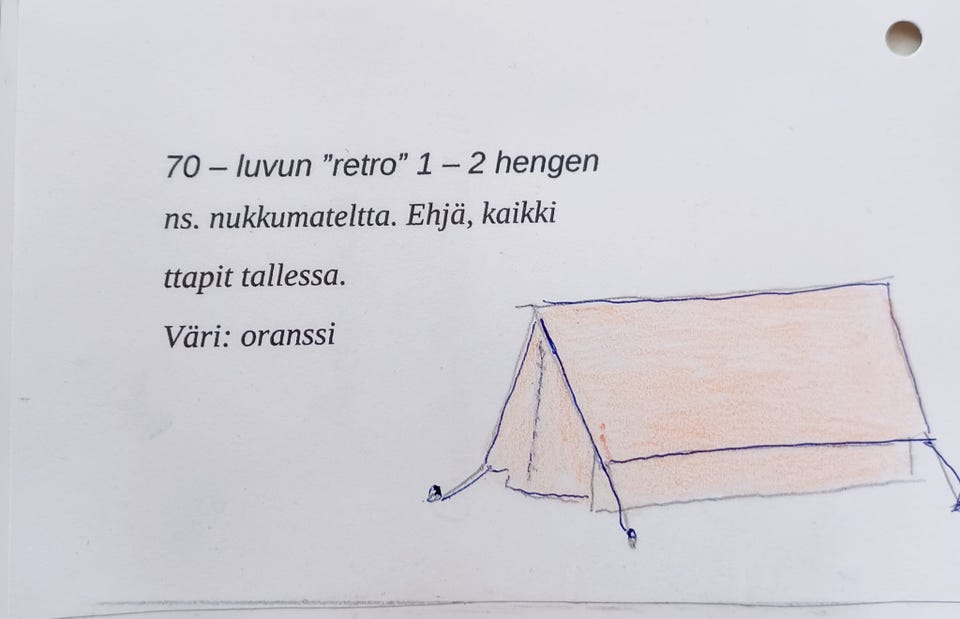 70 – luvun ”retro” 1 – 2 hengen
ns. nukkumateltta. Ehjä, kaikki
ttapit tallessa.
Väri: oranssi